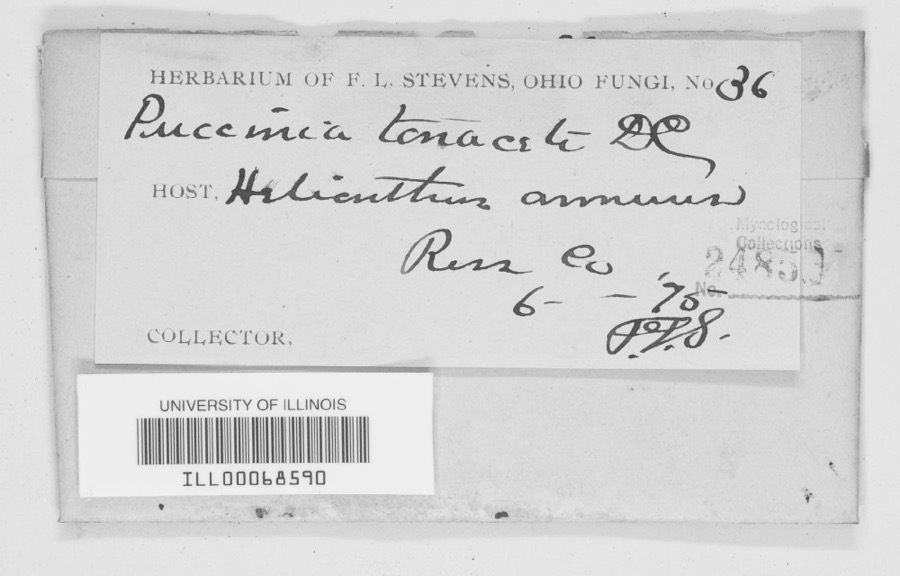 HERBARIUM OF F. L. STEVENS, OHIO FUNGI, No 36
Puccinia tanaceti DC
HOST, Helianthus annuus
Mycological
Collections
Ross Co
No.
6 - - '75
COLLECTOR,
UNIVERSITY OF ILLINOIS
ILL00068590